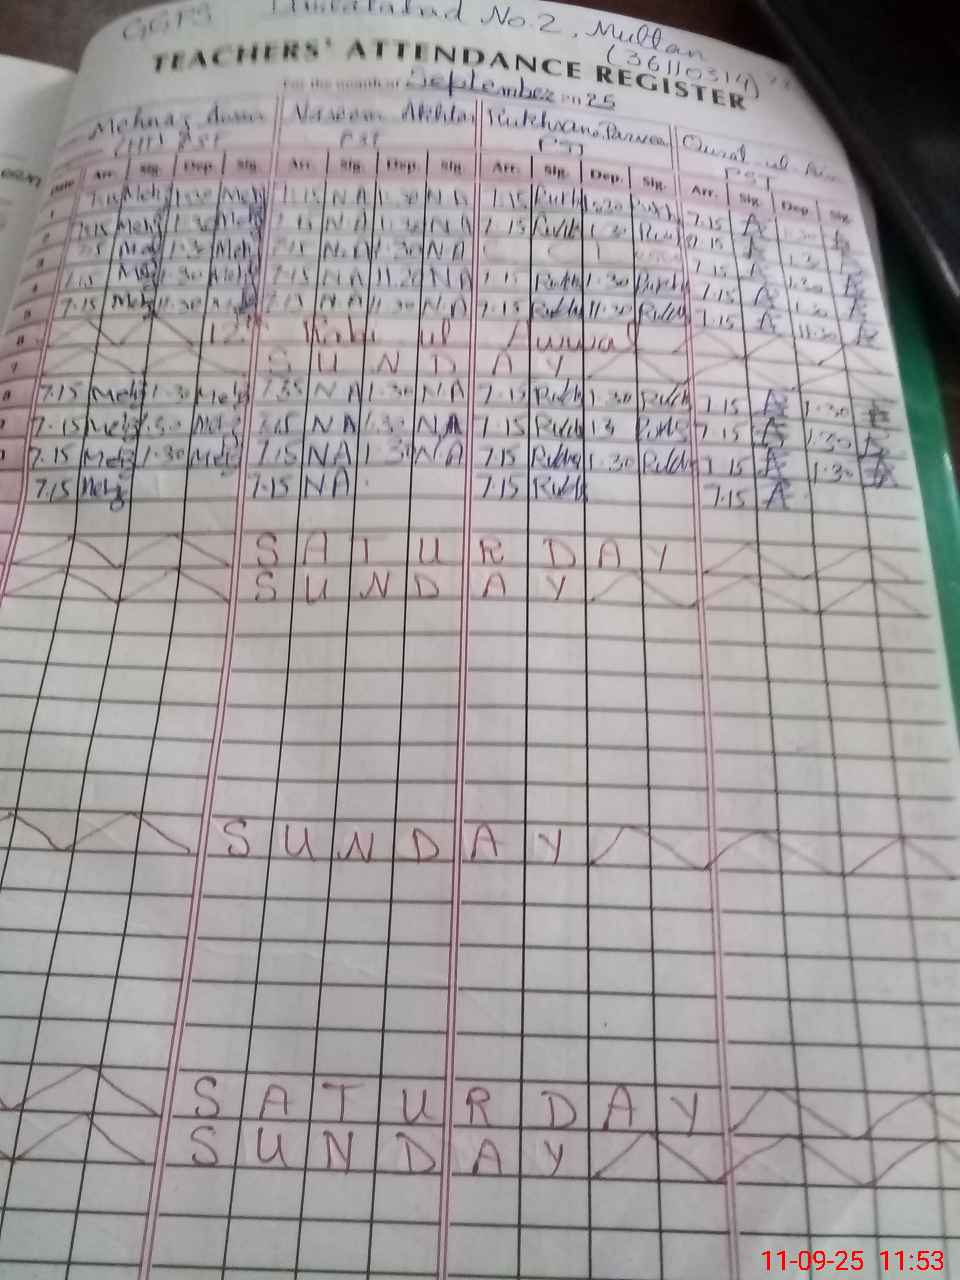 GGPS No.2, Multan
(36110314)
TEACHERS' ATTENDANCE REGISTER
For the month of September 2025
Mehnaz Naseem Akhtar Rukhsana Parveen Qurat-ul-Ain
PST PST PST PST
Date Arr. Sig. Dep. Sig. Arr. Sig. Dep. Sig. Arr. Sig. Dep. Sig. Arr. Sig. Dep. Sig.
1 Meh 1.30 Meh 7.15 NA 1.30 NA 7.15 Rukh 1.30 Rukh 7.15 A 1.30 A
2 7.15 Meh 1.30 Meh 7.15 NA 1.30 NA 7.15 Rukh 1.30 Rukh 7.15 A
3 Meh 1.30 Meh 7.15 NA 1.30 NA 7.15 A 1.30 A
4 7.15 Meh 1.30 Meh 7.15 NA NA 7.15 Rukh 1.30 Rukh 7.15 A 1.30 A
5 7.15 Meh 1.30 7.15 NA 1.30 NA 7.15 Rukh 11.30 Rukh 7.15 A 11.30 A
6 12th Rabi ul Awwal
7 SUNDAY
8 7.15 Meh 1.30 Meh NA 1.30 NA 7.15 Rukh 1.30 Rukh 7.15 A 1.30 A
7.15 Meh 1.30 Meh 7.15 NA 1.30 NA 7.15 Rukh Rukh 7.15 A 1.30 A
7.15 Meh 1.30 Meh 7.15 NA 1.30 NA 7.15 Rukh 1.30 Rukh 7.15 A 1.30 A
7.15 Meh 7.15 NA 7.15 Rukh 7.15 A
SATURDAY
SUNDAY
SUNDAY
SATURDAY
SUNDAY
11-09-25 11:53